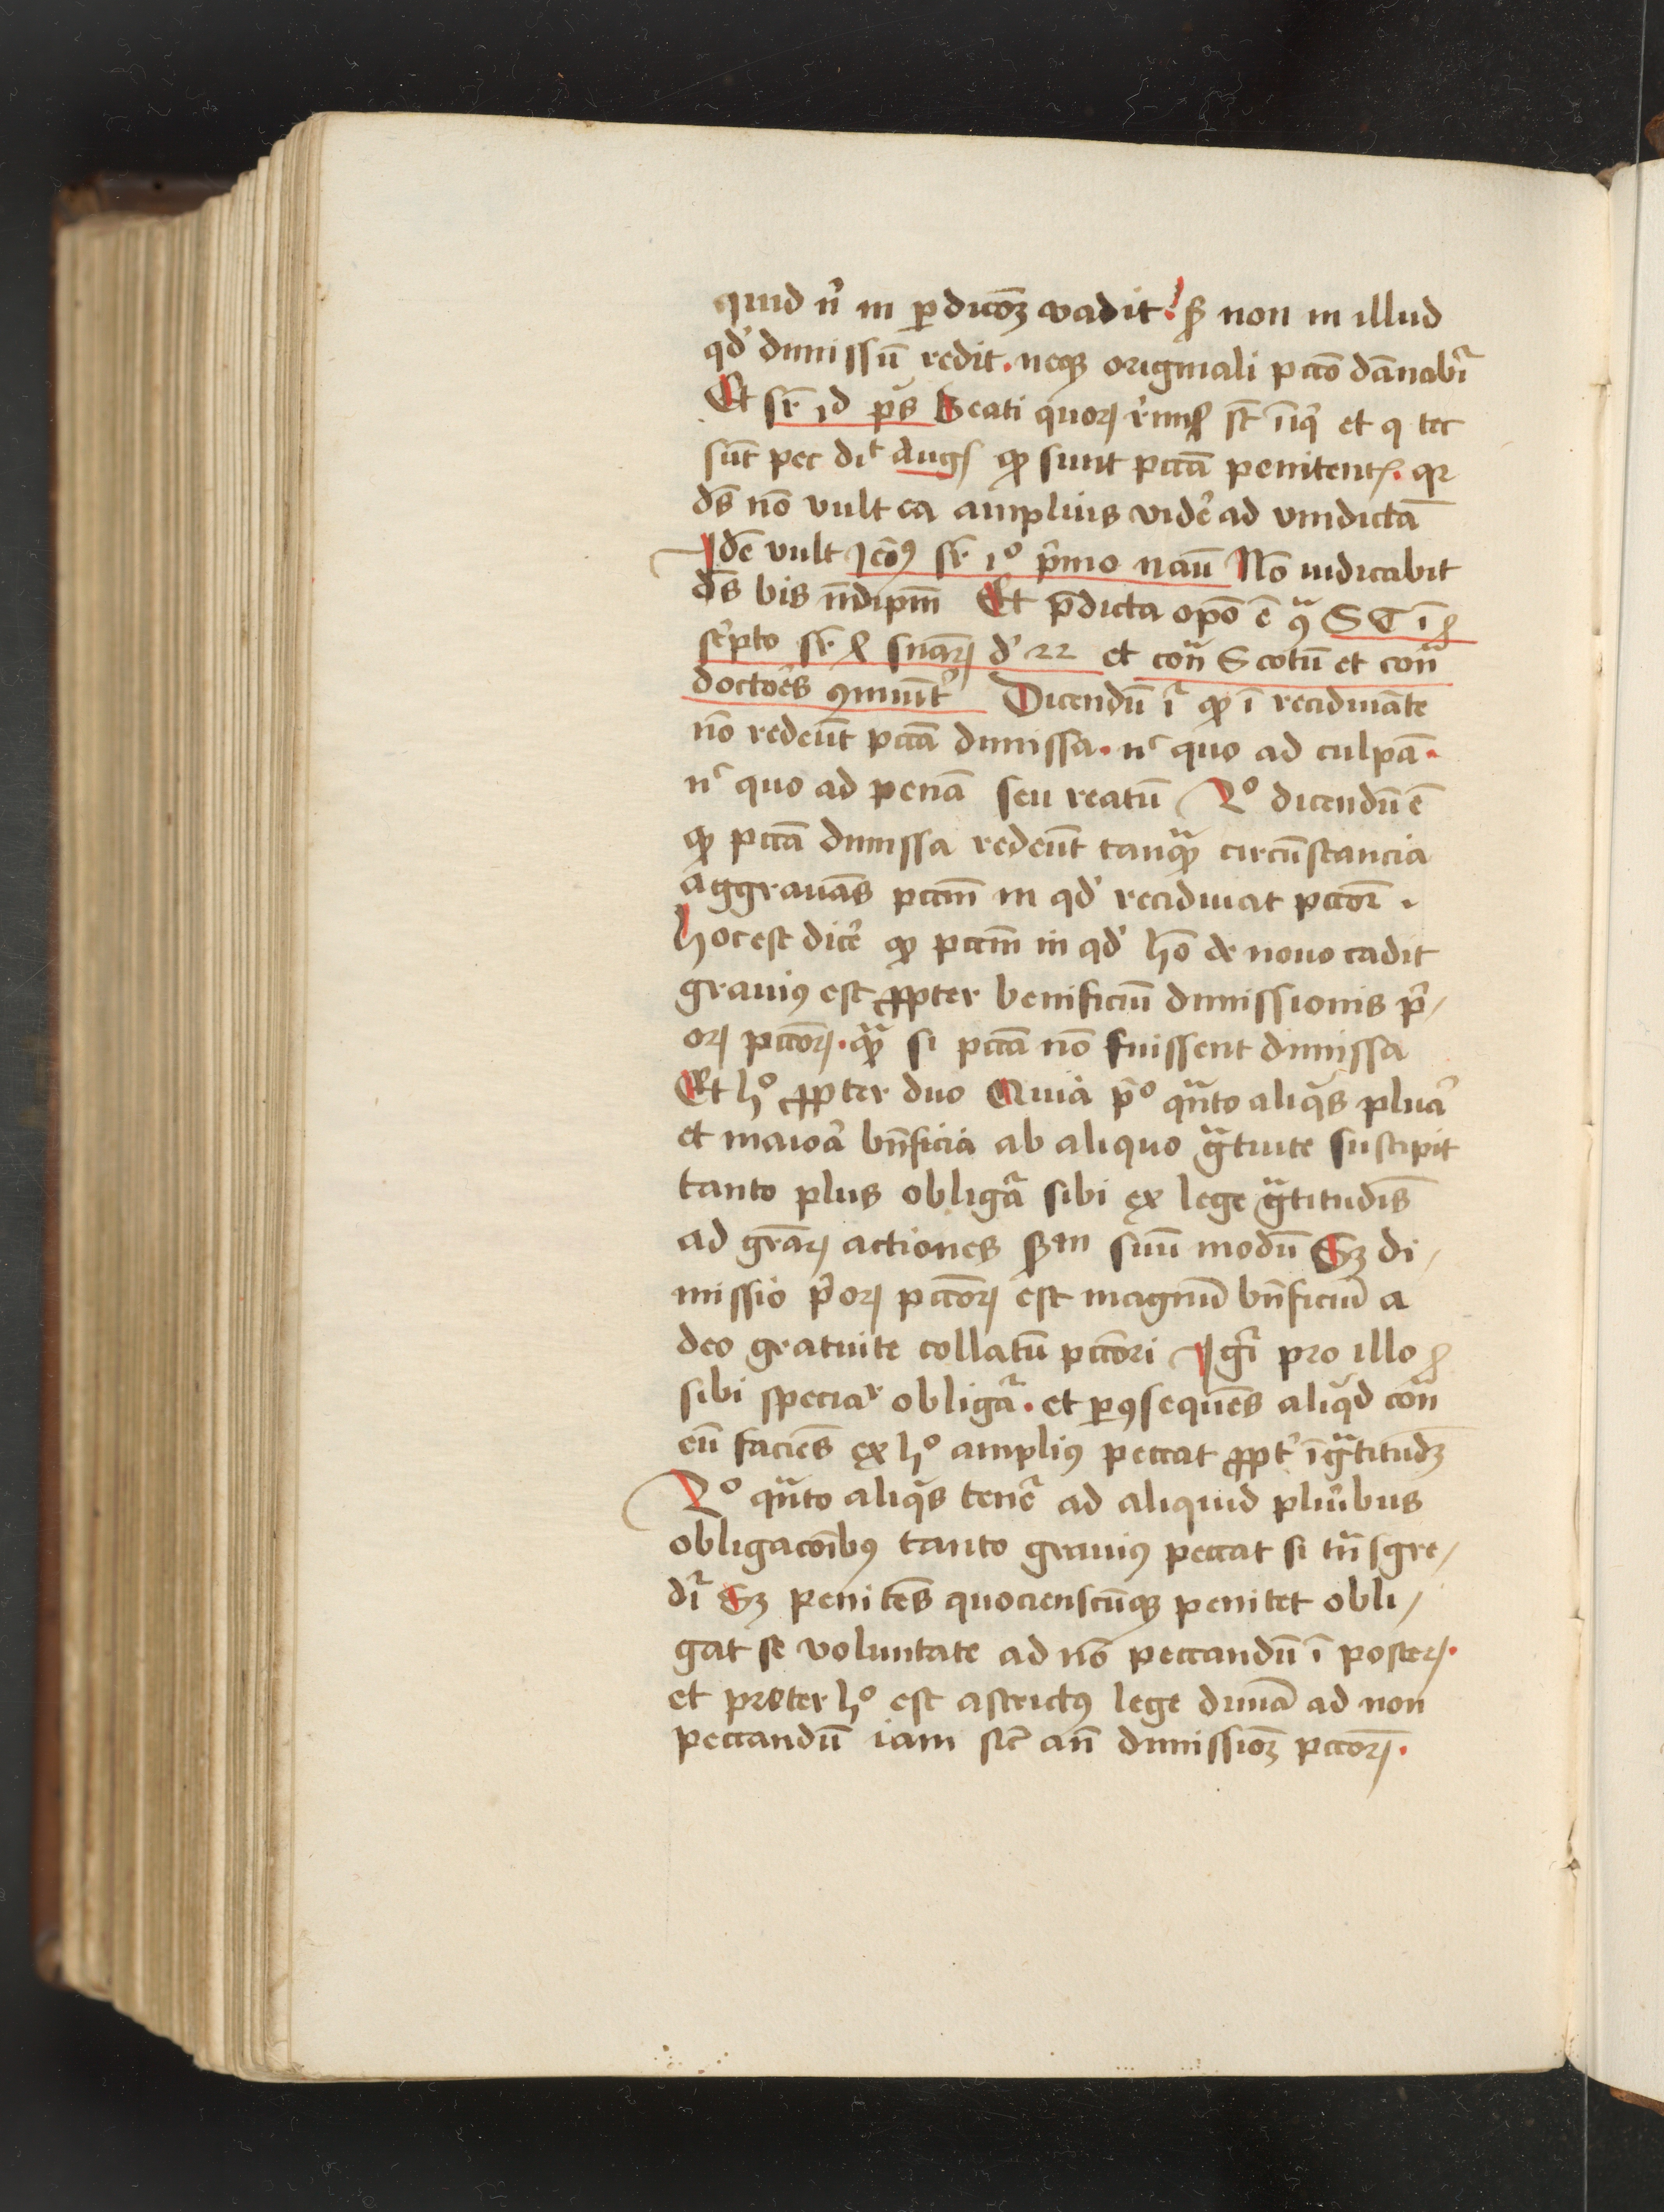 quid n̄ in ꝑdicōꝫ vadit. sꝫ non in illud
qd' dimissū redit. neqꝫ originali pctō dānabr̄
Et sr̄ id ps̄ Beati quoꝝ rimss̄ st̄ īiq̄ et q tec
sūt pec dit Augꝰ ꝙ sunt pctā penitentꝭ. qr
dꝰs nō vult ea amplius vider̄ ad vindictā
Idē vult Jeōꝰ sr̄ 1º pͥmo naū Nō iudicabit
dꝰs bis in idipm̄ Et p̄dicta opō ē ꝯª S T ī
sc̄pto sr̄ snīaꝝ d' 22 et conª Scotū et conª
doctōes ꝯmunīt' Dicendū ir̄ ꝙ ī recidiuāte
nō redeūt pctā dimissa. nᶜ quo ad culpā.
nᶜ quo ad penā seu reatū 2º dicendū ē
ꝙ pctā dimissa redeūt tanqꝫª circūstancia
aggrauās pctm̄ in qd' recidiuat pctōr.
hoc est dicer̄ ꝙ pctm̄ in qd' hō de nouo cadit
grauiꝰ est ꝓpter benificiū dimissionis pͥ-
oꝝ pctōꝝ. qꝫª si pctā nō fuissent dimissa
Et hº ꝓpter duo Quia pͥº qªnto aliqͥs plura
et maiora bn̄ficia ab aliquo gªtuite suscipit
tanto plus obligar̄ sibi ex lege gªtitudīs
ad gr̄aꝝ actiones sꝫm suū modū Sꝫ di-
missio pͥoꝝ pctōꝝ est magnū bn̄ficiū a
deo gratuite collatū pctōri Igͥr pro illo
sibi speciar obligar̄. et ꝑ ꝯsequēs aliqͥd conª
eū faciēs ex hº ampliꝰ peccat ꝓpt' īgªtitudꝫ
2º qªnto aliqͥs tener̄ ad aliquid pluribus
obligacōibꝰ tanto grauiꝰ peccat si tªnsgre-
dir̄ Sꝫ penitēs quocienscūqꝫ penitet obli-
gat se voluntate ad nō peccandū ī posteꝝ.
et preter hº est astrictꝰ lege diuīa ad non
peccandū iam sic̄ an̄ dimissiōꝫ pctōꝝ.